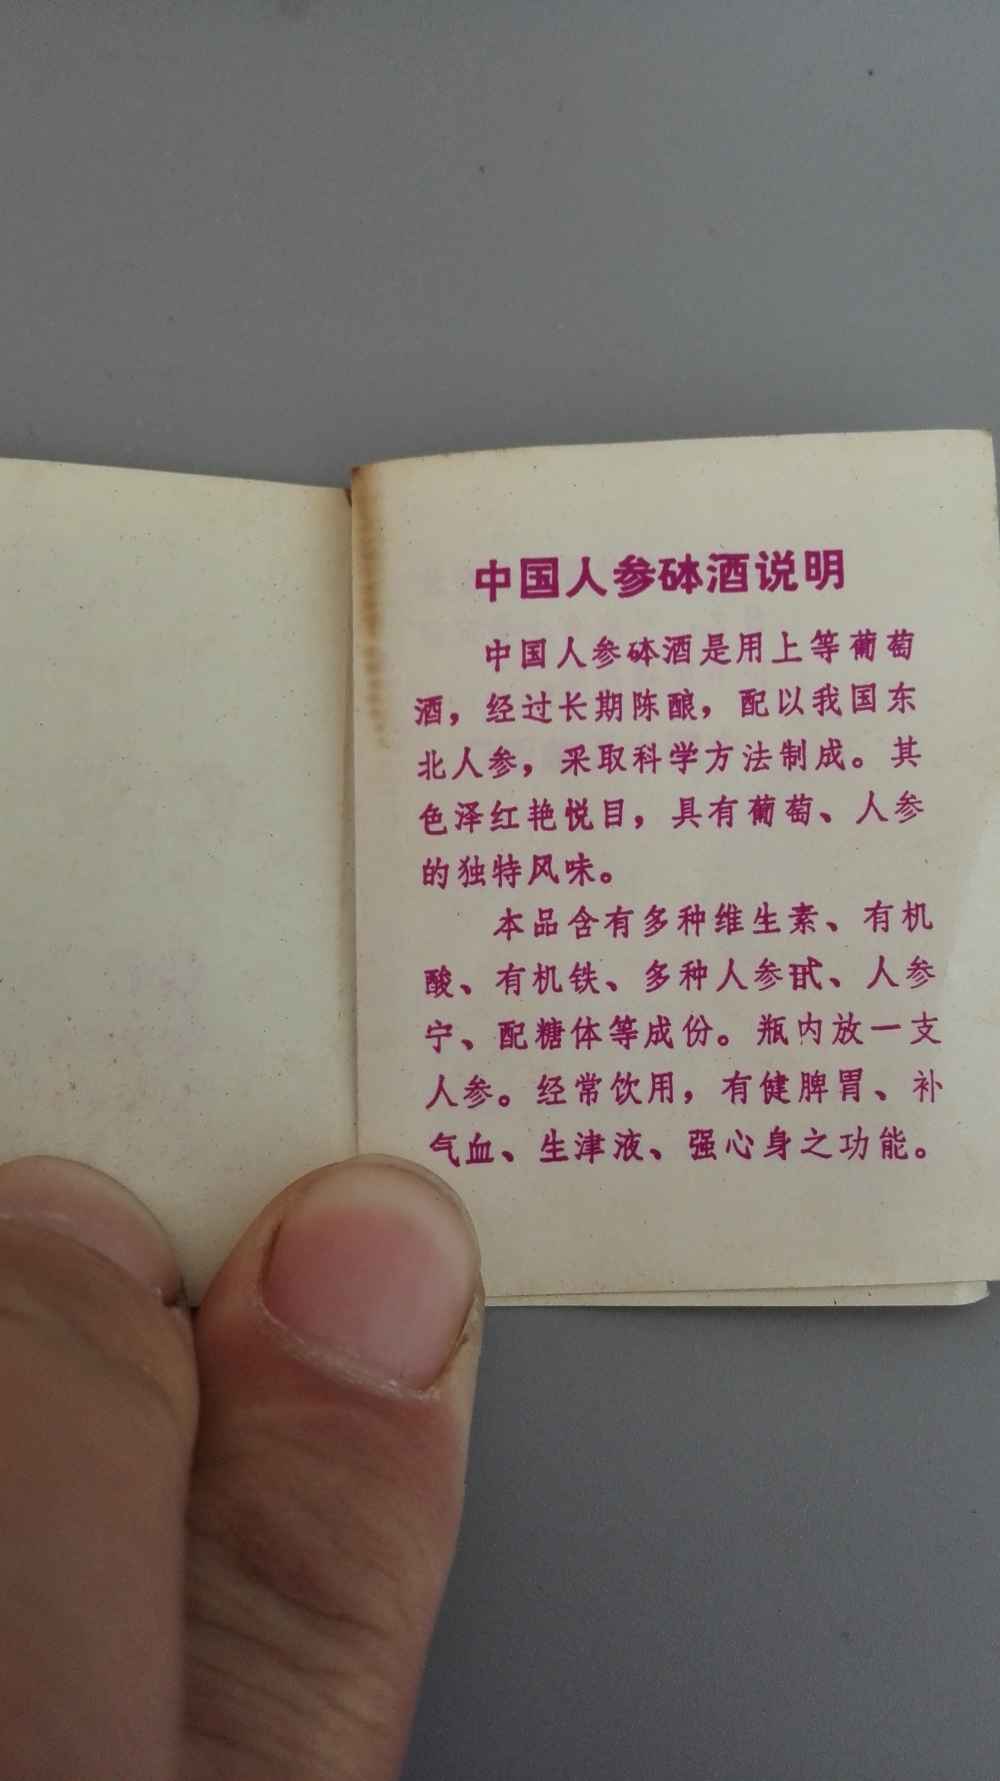 中国人参砵酒说明
中国人参砵酒是用上等葡萄
酒，经过长期陈酿，配以我国东
北人参，采取科学方法制成。其
色泽红艳悦目，具有葡萄、人参
的独特风味。
本品含有多种维生素、有机
酸、有机铁、多种人参甙、人参
宁、配糖体等成份。瓶内放一支
人参。经常饮用，有健脾胃、补
气血、生津液、强心身之功能。